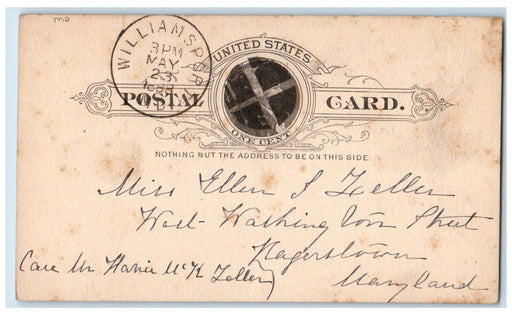 WILLIAMSPORT
3PM
MAY
23
MD.
UNITED STATES
POSTAL CARD.
ONE CENT
NOTHING BUT THE ADDRESS TO BE ON THIS SIDE.
Miss Ellen S Zeller
West-Washington Street
Hagerstown
Care Mr Harrie McK Zeller
Maryland